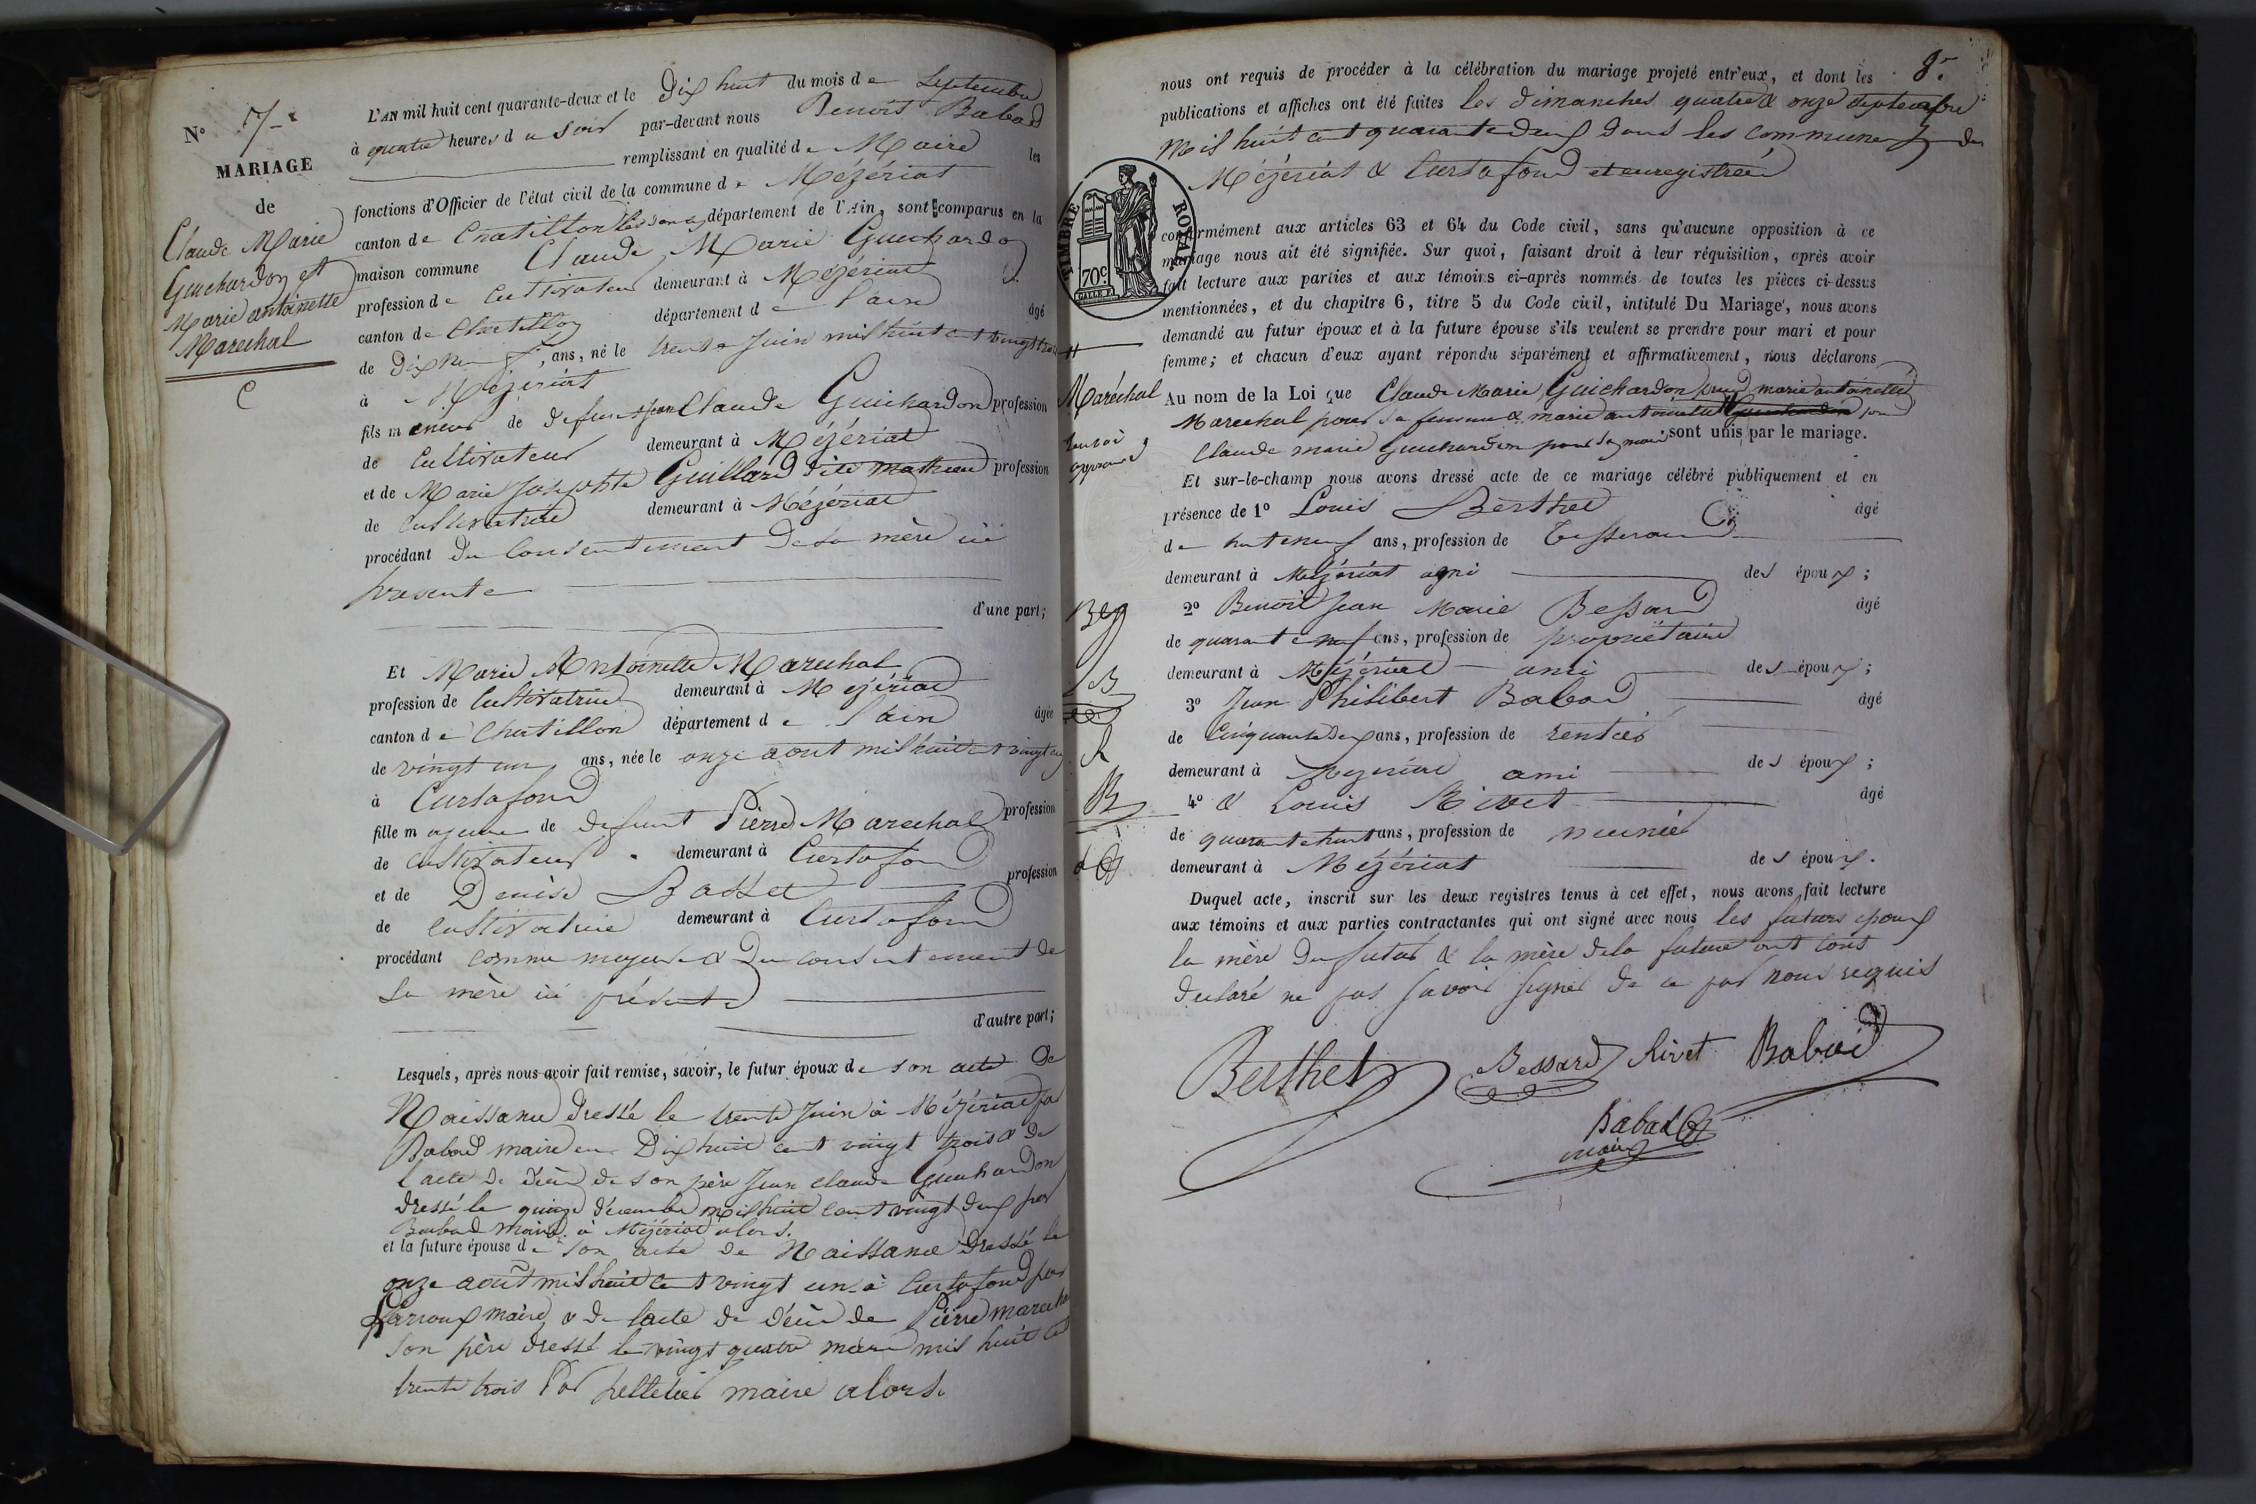 N° 7
MARIAGE
de
Claude Marie
Guichardon et
Marie antoinette
Marechal
L'AN mil huit cent quarante-deux et le Dix huit du mois de Septembre
à quatre heures du Soir par-devant nous Benoit Babad
remplissant en qualité de Maire les
fonctions d'Officier de l'état civil de la commune de Mézériat
canton de Chatillon les dombes département de l'Ain, sont comparus en la
maison commune Claude Marie Guichardon
profession de Cultivateur demeurant à Mézériat
canton de Chatillon département de l'ain âgé
de Dix neuf ans, né le trente Juin mil huit cent vingt trois
à Mézériat
fils mineur de defunt Jean Claude Guichardon profession
de Cultivateur demeurant à Mézériat
et de Marie Josephte Guillard dite mathieu profession
de Cultivatrice demeurant à Mézériat
procédant du Consentement de sa mère ici
presente
d'une part;
Et Marie Antoinette Marechal
profession de Cultivatrice demeurant à Mézériat
canton de Chatillon département de l'ain âgée
de vingt un ans, née le onze aout mil huit cent vingt un
à Curtafond
fille majeure de defunt Pierre Marechal profession
de Cultivateur demeurant à Curtafond
et de Denise Basset profession
de Cultivatrice demeurant à Curtafond
procédant comme majeure & du consentement de
sa mère ici présente
d'autre part;
Lesquels, après nous avoir fait remise, savoir, le futur époux de son acte de
Naissance dressé le trente Juin à Mézériat par
Babad maire en Dix huit cent vingt trois & de
l'acte de décès de son père Jean claude Guichardon
dressé le quinze décembre mil huit cent vingt deux par
Babad maire à Mézériat alors.
et la future épouse de son acte de Naissance dressé le
onze août mil huit cent vingt un à Curtafond par
maire & de lacte de décès de Pierre marechal
son père dressé le vingt quatre mars mil huit cent
trente trois Par pelletier maire alors.
8.
nous ont requis de procéder à la célébration du mariage projeté entr'eux, et dont les
publications et affiches ont été faites les dimanches quatre & onze septembre
mil huit cent quarante deux dans les communes de
Mézériat & Curtafond et enregistrées
TIMBRE ROYAL
70 c.
conformément aux articles 63 et 64 du Code civil, sans qu'aucune opposition à ce
mariage nous ait été signifiée. Sur quoi, faisant droit à leur réquisition, après avoir
fait lecture aux parties et aux témoins ci-après nommés de toutes les pièces ci-dessus
mentionnées, et du chapitre 6, titre 5 du Code civil, intitulé Du Mariage, nous avons
demandé au futur époux et à la future épouse s'ils veulent se prendre pour mari et pour
femme; et chacun d'eux ayant répondu séparément et affirmativement, nous déclarons
Maréchal
renvoi
approuvé
Au nom de la Loi que Claude Marie Guichardon prend marie antoinette
Marechal pour sa femme & marie antoinette Guichardon prend
Claude marie Guichardon pour son mari sont unis par le mariage.
Et sur-le-champ nous avons dressé acte de ce mariage célébré publiquement et en
présence de 1° Louis Berthet âgé
de ans, profession de Tisserand
demeurant à Mézériat ami des époux;
2° Benoit Jean Marie Bessard âgé
de quarante neuf ans, profession de propriétaire
demeurant à Mézériat ami des époux;
3° Jean Philibert Babad âgé
de Cinquante deux ans, profession de rentier
demeurant à Mézériat ami des époux;
4° & Louis Rivet âgé
de quarante huit ans, profession de meunier
demeurant à Mézériat des époux.
Duquel acte, inscrit sur les deux registres tenus à cet effet, nous avons fait lecture
aux témoins et aux parties contractantes qui ont signé avec nous les futurs époux
la mère du futur & la mère de la future ont tous
declaré ne pas savoir signer de ce par nous requis
Berthet Bessard Rivet Babad
Babad
maire